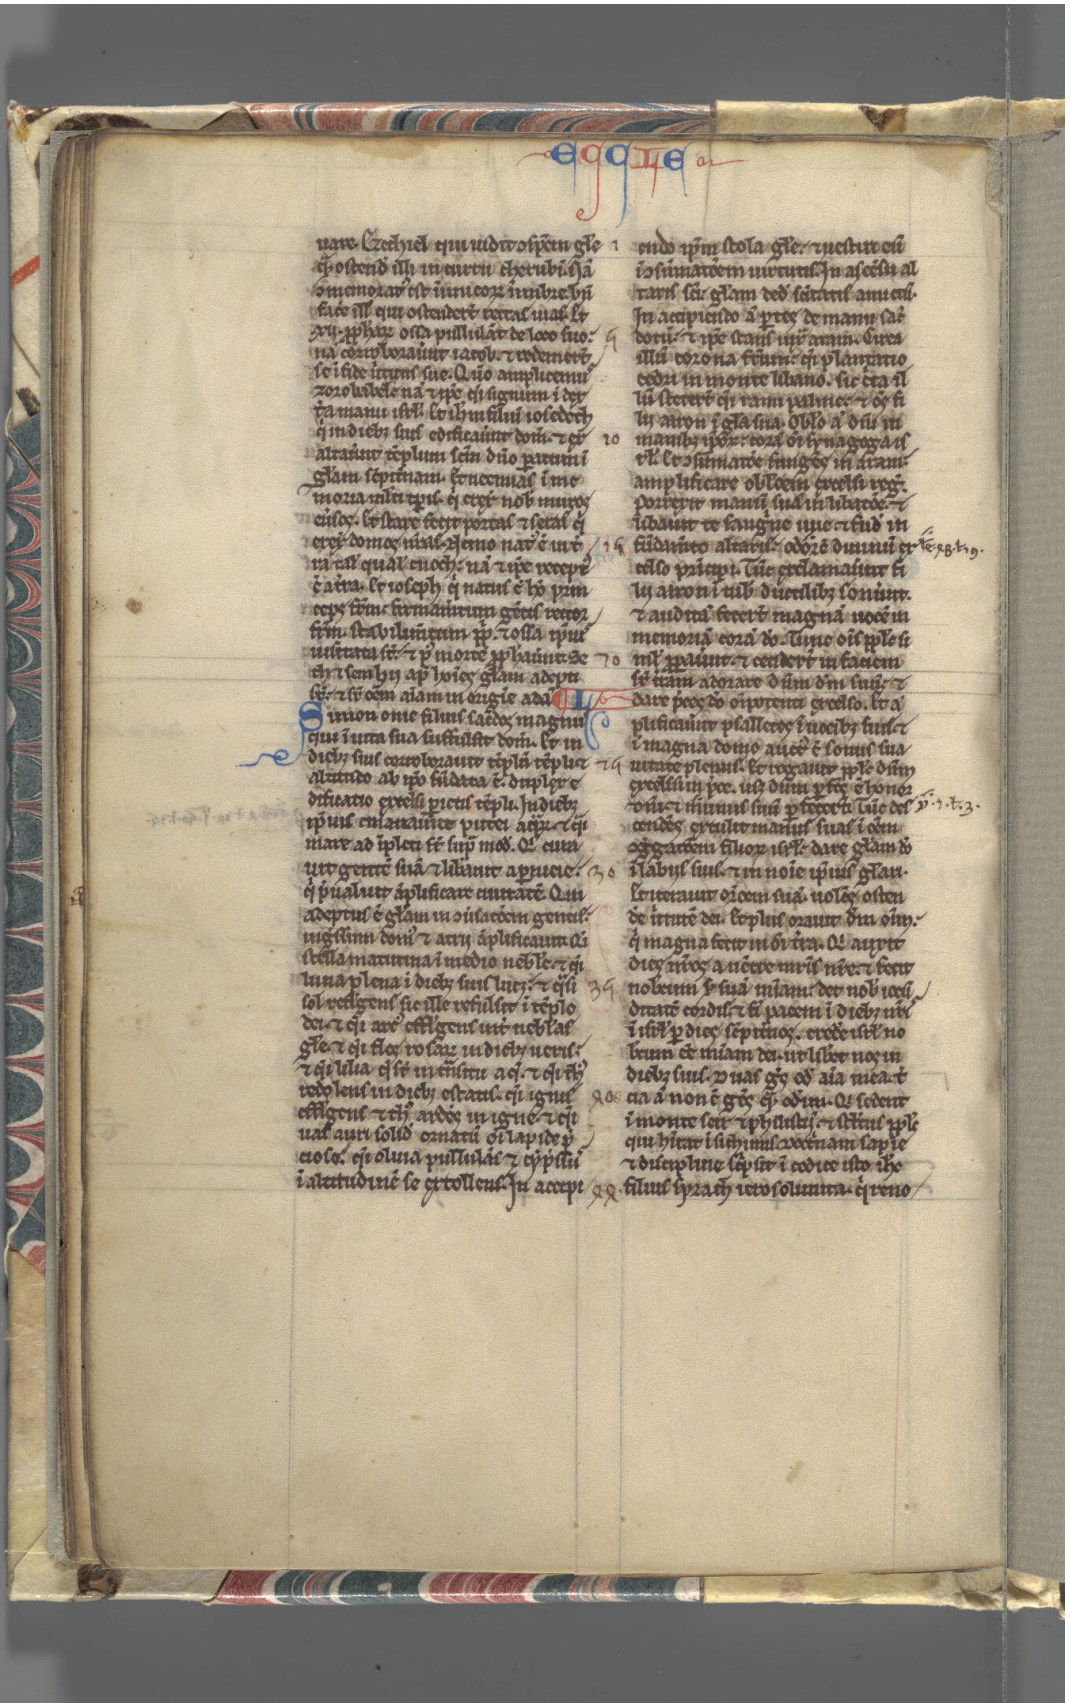 EccLe
uare. Ezechiel qui uidit ɔspectū gl̄e
q̄ ostend̄ illi in curru cherubī. Nā
ɔmemorat᷒ est inimicoꝝ in imbre. bn̄
facͤ illis qui ostenderūt rectas uias. Et
xij. ꝓphaꝝ ossa pullulāt de loco suo.
nā corroborauerūt iacob. ⁊ redemerūt
se ī fide uirtutis sue. Quō amplicemus
zorobabel. nā ⁊ ip̄e q̄i signum ī dex
tͣ manu isrl̄. Et ih̄m filiū iosedech
q̄ in diebꝫ suis edificauūt domū. ⁊ ex
altauūt tēplum scm̄ dn̄o paratum ī
gl̄am sēpitnam. Et neemias ī me
moria multi tp̄is. q̄ erexit nob̄ muros
euersos. Et stare fecit portas ⁊ seras q̄
erexit domos nr̄as. Nemo nat᷒ ē in t̄
ra talis qualis enoch. nā ⁊ ip̄e recept᷒
ē a t̄ra. Et ioseph q̄ natus ē hō prin
ceps frm̄. firmamentum gentis rector
frm̄. stabilimētum pp̄li. ⁊ ossa ip̄ius
uisitata st̄. ⁊ p᷒ mortē ꝓphauerūt. Se
th ⁊ sem hij apd̄ hoīes gl̄am adepti
st̄. ⁊ sr̄ oēm aīam in origīe adā. L
Simon onie filius sac̄dos magnus
qui ī uita sua suffulsit domū. Et in
diebꝫ suis corroborauit tēplū. tēpli ⁊
altitudo ab ip̄o fūdata ē. duplex e
dificatio ⁊ excelsi parietes tēpli. In diebꝫ
ip̄ius emanauerūt putei aq̄ꝝ ⁊ q̄i
mare adīpleti st̄ supͣ mod̄. Qͥ cura
uit gentē suā ⁊ libauit a pernicie.
q̄ p̄ualuit āplificare ciuitatē. Qui
adeptus ē gl̄am in ɔuersatōem gentis.
ingressum domus ⁊ atrij āplificauit. Qͥ
stella matutina ī medio nebl̄e. ⁊ q̄i
luna plena ī diebꝫ suis lucet. ⁊ q̄i
sol refulgens sic ille refulsit ī tēplo
dei. ⁊ q̄i arc᷒ effulgens int̄ neblas
gl̄e. ⁊ q̄i flos rosaꝝ in diebꝫ ueris.
⁊ q̄i lilia q̄ st̄ in trāsitu aq̄. ⁊ q̄i th᷒
redolens in diebꝫ estatis. q̄i ignis
effulgens ⁊ th᷒ ardēs in igne. ⁊ q̄i
uas auri solid̄ ornatū oī lapide p̄
cioso. q̄i oliua pullulās ⁊ cyp̄ssus
ī altitudinē se extollens. In accipi
1
5
10
15
20
25
30
35
40
44
endo ip̄m stola gl̄e. ⁊ uestiri eū
ī ɔsūmatōem uirtutis. In ascēsu al
taris sc̄i gl̄am ded̄ sc̄itatis amictū.
In accipiendo aū partes de manu sac̄
dotū. ⁊ ip̄e stans iux̄ aram. Circa
illū corona frūm. q̄i plantatio
cedri in monte libano. sic circa il
lū steterūt q̄i rami palme. ⁊ oēs fi
lij aaron ī gl̄a sua. Oblo aū dn̄i in
manibꝫ ip̄oꝝ. corā oī synagoga is
rl̄. Et ɔsūmatōe fungēs in aram.
amplificare oblōem excelsi reḡ.
Porrexit manū suā in libatōe. ⁊
libauit de sanguine uue. ⁊ fud̄ in
fūdamēto altaris. odorē diuinū ex
celso principi. Tūc exclamauerūt fi
lij aaron ī tubis ductilibꝫ sonuerūt.
⁊ auditā fecerūt magnā uocem in
memoriā corā dō. Tunc oīs pp̄ls si
mul ꝓpauerūt. ⁊ cecidert̄ in faciem
sr̄ t̄ram adorare dn̄m dm̄ suū. ⁊
dare p̄ces dō oīpotenti excelso. Et ā
plificauerūt psallētes ī uocibꝫ suis. ⁊
ī magna domo auct᷒ ē sonus sua
uitate plenus. Et rogauit pp̄ls dn̄m
excelsum in p̄ce. usqꝫ dum p̄fectus ē honor
dn̄i. ⁊ munus suū p̄fecerūt. Tūc des
cendēs extulit manus suas ī oēm
ɔgregatōem filioꝝ isrl̄. dare gl̄am dō
ī labijs suis. ⁊ in noīe ip̄ius gl̄ari.
Et iterauit orōem suā. uolēs osten
de uirtutē dei. Et plus orauit dm̄ oīm.
q̄ magna fecit in oī t̄ra. Qͥ auxit
dies nr̄os a uentre mr̄is nr̄e. ⁊ fecit
nobiscum s̄ suā mīam. det nob̄ iocū
ditatē cordis. ⁊ fi pacem ī diebꝫ nr̄is
ī isrl̄ per dies sēpitnos. credere isrl̄ no
biscum eē mīam dei. ut liberet nos in
diebꝫ suis. Duas gētes od̄ aīa mea. t̄
cia aū non ē gēs q̄ odim. Qͥ sedent
ī monte seir ⁊ philistijm. ⁊ stult᷒ pp̄ls
qui hītat ī sichimis. Doctrinam sapīe
⁊ discipline sc̄psit ī codice isto ih̄c
filius syrach ierosolimita. q̄ reno